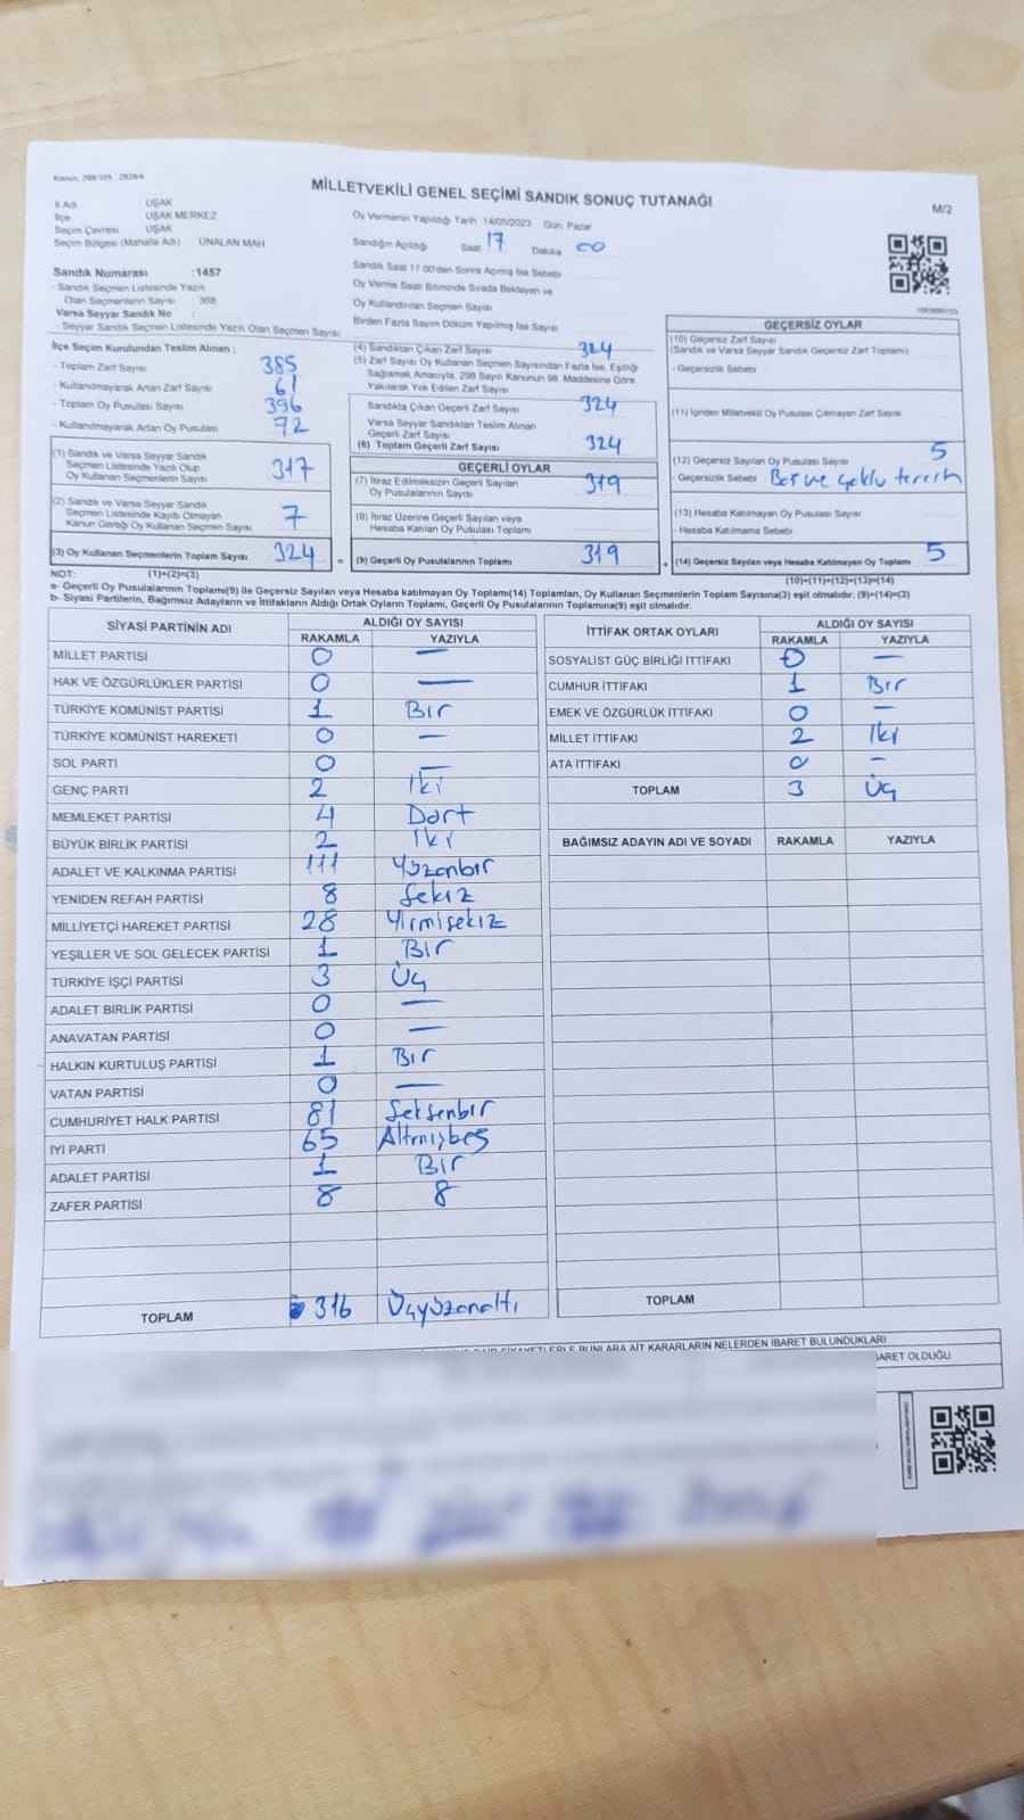 MİLLETVEKİLİ GENEL SEÇİMİ SANDIK SONUÇ TUTANAĞI
M/2
İl Adı UŞAK
İlçe UŞAK MERKEZ
Seçim Çevresi UŞAK
Seçim Bölgesi (Mahalle Adı) ÜNALAN MAH
Oy Vermenin Yapıldığı Tarih 14/05/2023 Gün Pazar
Sandığın Açıldığı Saat 17 Dakika 00
Sandık Saat 17.00'den Sonra Açılmış İse Sebebi
Oy Verme Saati Bitiminde Sırada Bekleyen ve
Oy Kullandırılan Seçmen Sayısı
Birden Fazla Sayım Döküm Yapılmış İse Sayısı
Sandık Numarası :1457
- Sandık Seçmen Listesinde Yazılı
Olan Seçmenlerin Sayısı
Varsa Seyyar Sandık No
- Seyyar Sandık Seçmen Listesinde Yazılı Olan Seçmen Sayısı
İlçe Seçim Kurulundan Teslim Alınan :
- Toplam Zarf Sayısı 385
- Kullanılmayarak Artan Zarf Sayısı 61
- Toplam Oy Pusulası Sayısı 396
- Kullanılmayarak Artan Oy Pusulası 72
(1) Sandık ve Varsa Seyyar Sandık
Seçmen Listesinde Yazılı Olup
Oy Kullanan Seçmenlerin Sayısı 317
(2) Sandık ve Varsa Seyyar Sandık
Seçmen Listesinde Kayıtlı Olmayan
Kanun Gereği Oy Kullanan Seçmen Sayısı 7
(3) Oy Kullanan Seçmenlerin Toplam Sayısı 324
(1)+(2)=(3)
(4) Sandıktan Çıkan Zarf Sayısı 324
(5) Zarf Sayısı Oy Kullanan Seçmen Sayısından Fazla İse, Eşitliği
Sağlamak Amacıyla, 298 Sayılı Kanunun 98. Maddesine Göre
Yakılarak Yok Edilen Zarf Sayısı
Sandıkta Çıkan Geçerli Zarf Sayısı 324
Varsa Seyyar Sandıktan Teslim Alınan
Geçerli Zarf Sayısı
(6) Toplam Geçerli Zarf Sayısı 324
GEÇERLİ OYLAR
(7) İtiraz Edilmeksizin Geçerli Sayılan
Oy Pusulalarının Sayısı 319
(8) İtiraz Üzerine Geçerli Sayılan veya
Hesaba Katılan Oy Pusulası Toplamı
= (9) Geçerli Oy Pusulalarının Toplamı 319
GEÇERSİZ OYLAR
(10) Geçersiz Zarf Sayısı
(Sandık ve Varsa Seyyar Sandık Geçersiz Zarf Toplamı)
- Geçersizlik Sebebi
(11) İçinden Milletvekili Oy Pusulası Çıkmayan Zarf Sayısı
(12) Geçersiz Sayılan Oy Pusulası Sayısı 5
- Geçersizlik Sebebi Boş ve çoklu tercih
(13) Hesaba Katılmayan Oy Pusulası Sayısı
- Hesaba Katılmama Sebebi
+ (14) Geçersiz Sayılan veya Hesaba Katılmayan Oy Toplamı 5
(10)+(11)+(12)+(13)=(14)
NOT:
a- Geçerli Oy Pusulalarının Toplamı(9) ile Geçersiz Sayılan veya Hesaba katılmayan Oy Toplamı(14) Toplamları, Oy Kullanan Seçmenlerin Toplam Sayısına(3) eşit olmalıdır. (9)+(14)=(3)
b- Siyasi Partilerin, Bağımsız Adayların ve İttifakların Aldığı Ortak Oyların Toplamı, Geçerli Oy Pusulalarının Toplamına(9) eşit olmalıdır.
SİYASİ PARTİNİN ADI ALDIĞI OY SAYISI
RAKAMLA YAZIYLA
MİLLET PARTİSİ 0 —
HAK VE ÖZGÜRLÜKLER PARTİSİ 0 —
TÜRKİYE KOMÜNİST PARTİSİ 1 Bir
TÜRKİYE KOMÜNİST HAREKETİ 0 —
SOL PARTİ 0 —
GENÇ PARTİ 2 İki
MEMLEKET PARTİSİ 4 Dört
BÜYÜK BİRLİK PARTİSİ 2 İki
ADALET VE KALKINMA PARTİSİ 111 Yüzonbir
YENİDEN REFAH PARTİSİ 8 Sekiz
MİLLİYETÇİ HAREKET PARTİSİ 28 Yirmisekiz
YEŞİLLER VE SOL GELECEK PARTİSİ 1 Bir
TÜRKİYE İŞÇİ PARTİSİ 3 Üç
ADALET BİRLİK PARTİSİ 0 —
ANAVATAN PARTİSİ 0 —
HALKIN KURTULUŞ PARTİSİ 1 Bir
VATAN PARTİSİ 0 —
CUMHURİYET HALK PARTİSİ 81 Seksenbir
İYİ PARTİ 65 Altmışbeş
ADALET PARTİSİ 1 Bir
ZAFER PARTİSİ 8 8
TOPLAM 316 Üçyüzonaltı
İTTİFAK ORTAK OYLARI ALDIĞI OY SAYISI
RAKAMLA YAZIYLA
SOSYALİST GÜÇ BİRLİĞİ İTTİFAKI 0 —
CUMHUR İTTİFAKI 1 Bir
EMEK VE ÖZGÜRLÜK İTTİFAKI 0 —
MİLLET İTTİFAKI 2 İki
ATA İTTİFAKI 0 —
TOPLAM 3 Üç
BAĞIMSIZ ADAYIN ADI VE SOYADI RAKAMLA YAZIYLA
TOPLAM
BUNLARA AİT KARARLARIN NELERDEN İBARET BULUNDUKLARI
OLDUĞU